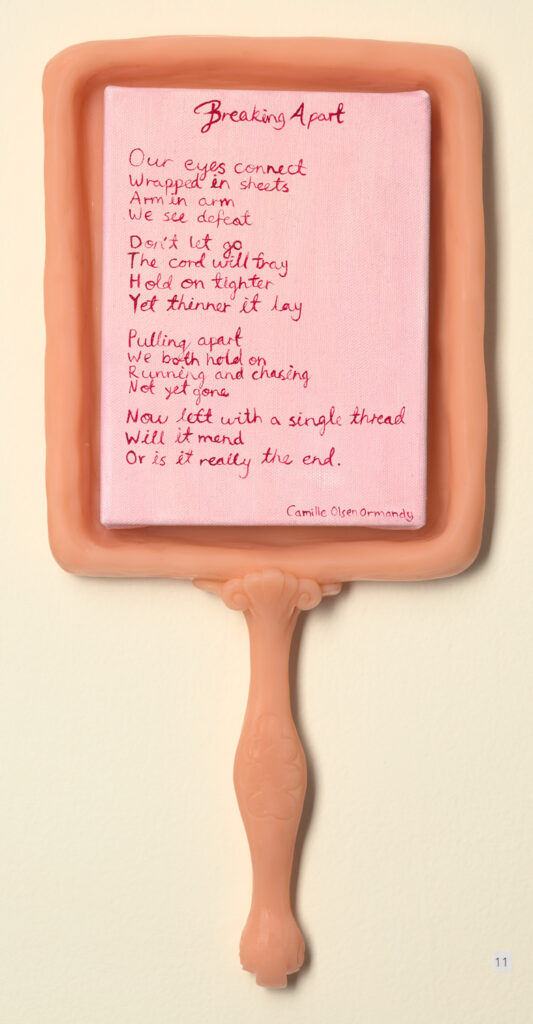 Breaking Apart
Our eyes connect
Wrapped in sheets
Arm in arm
We see defeat
Don't let go
The cord will fray
Hold on tighter
Yet thinner it lay
Pulling apart
We both hold on
Running and chasing
Not yet gone
Now left with a single thread
Will it mend
Or is it really the end.
Camille Olsen Ormandy
11